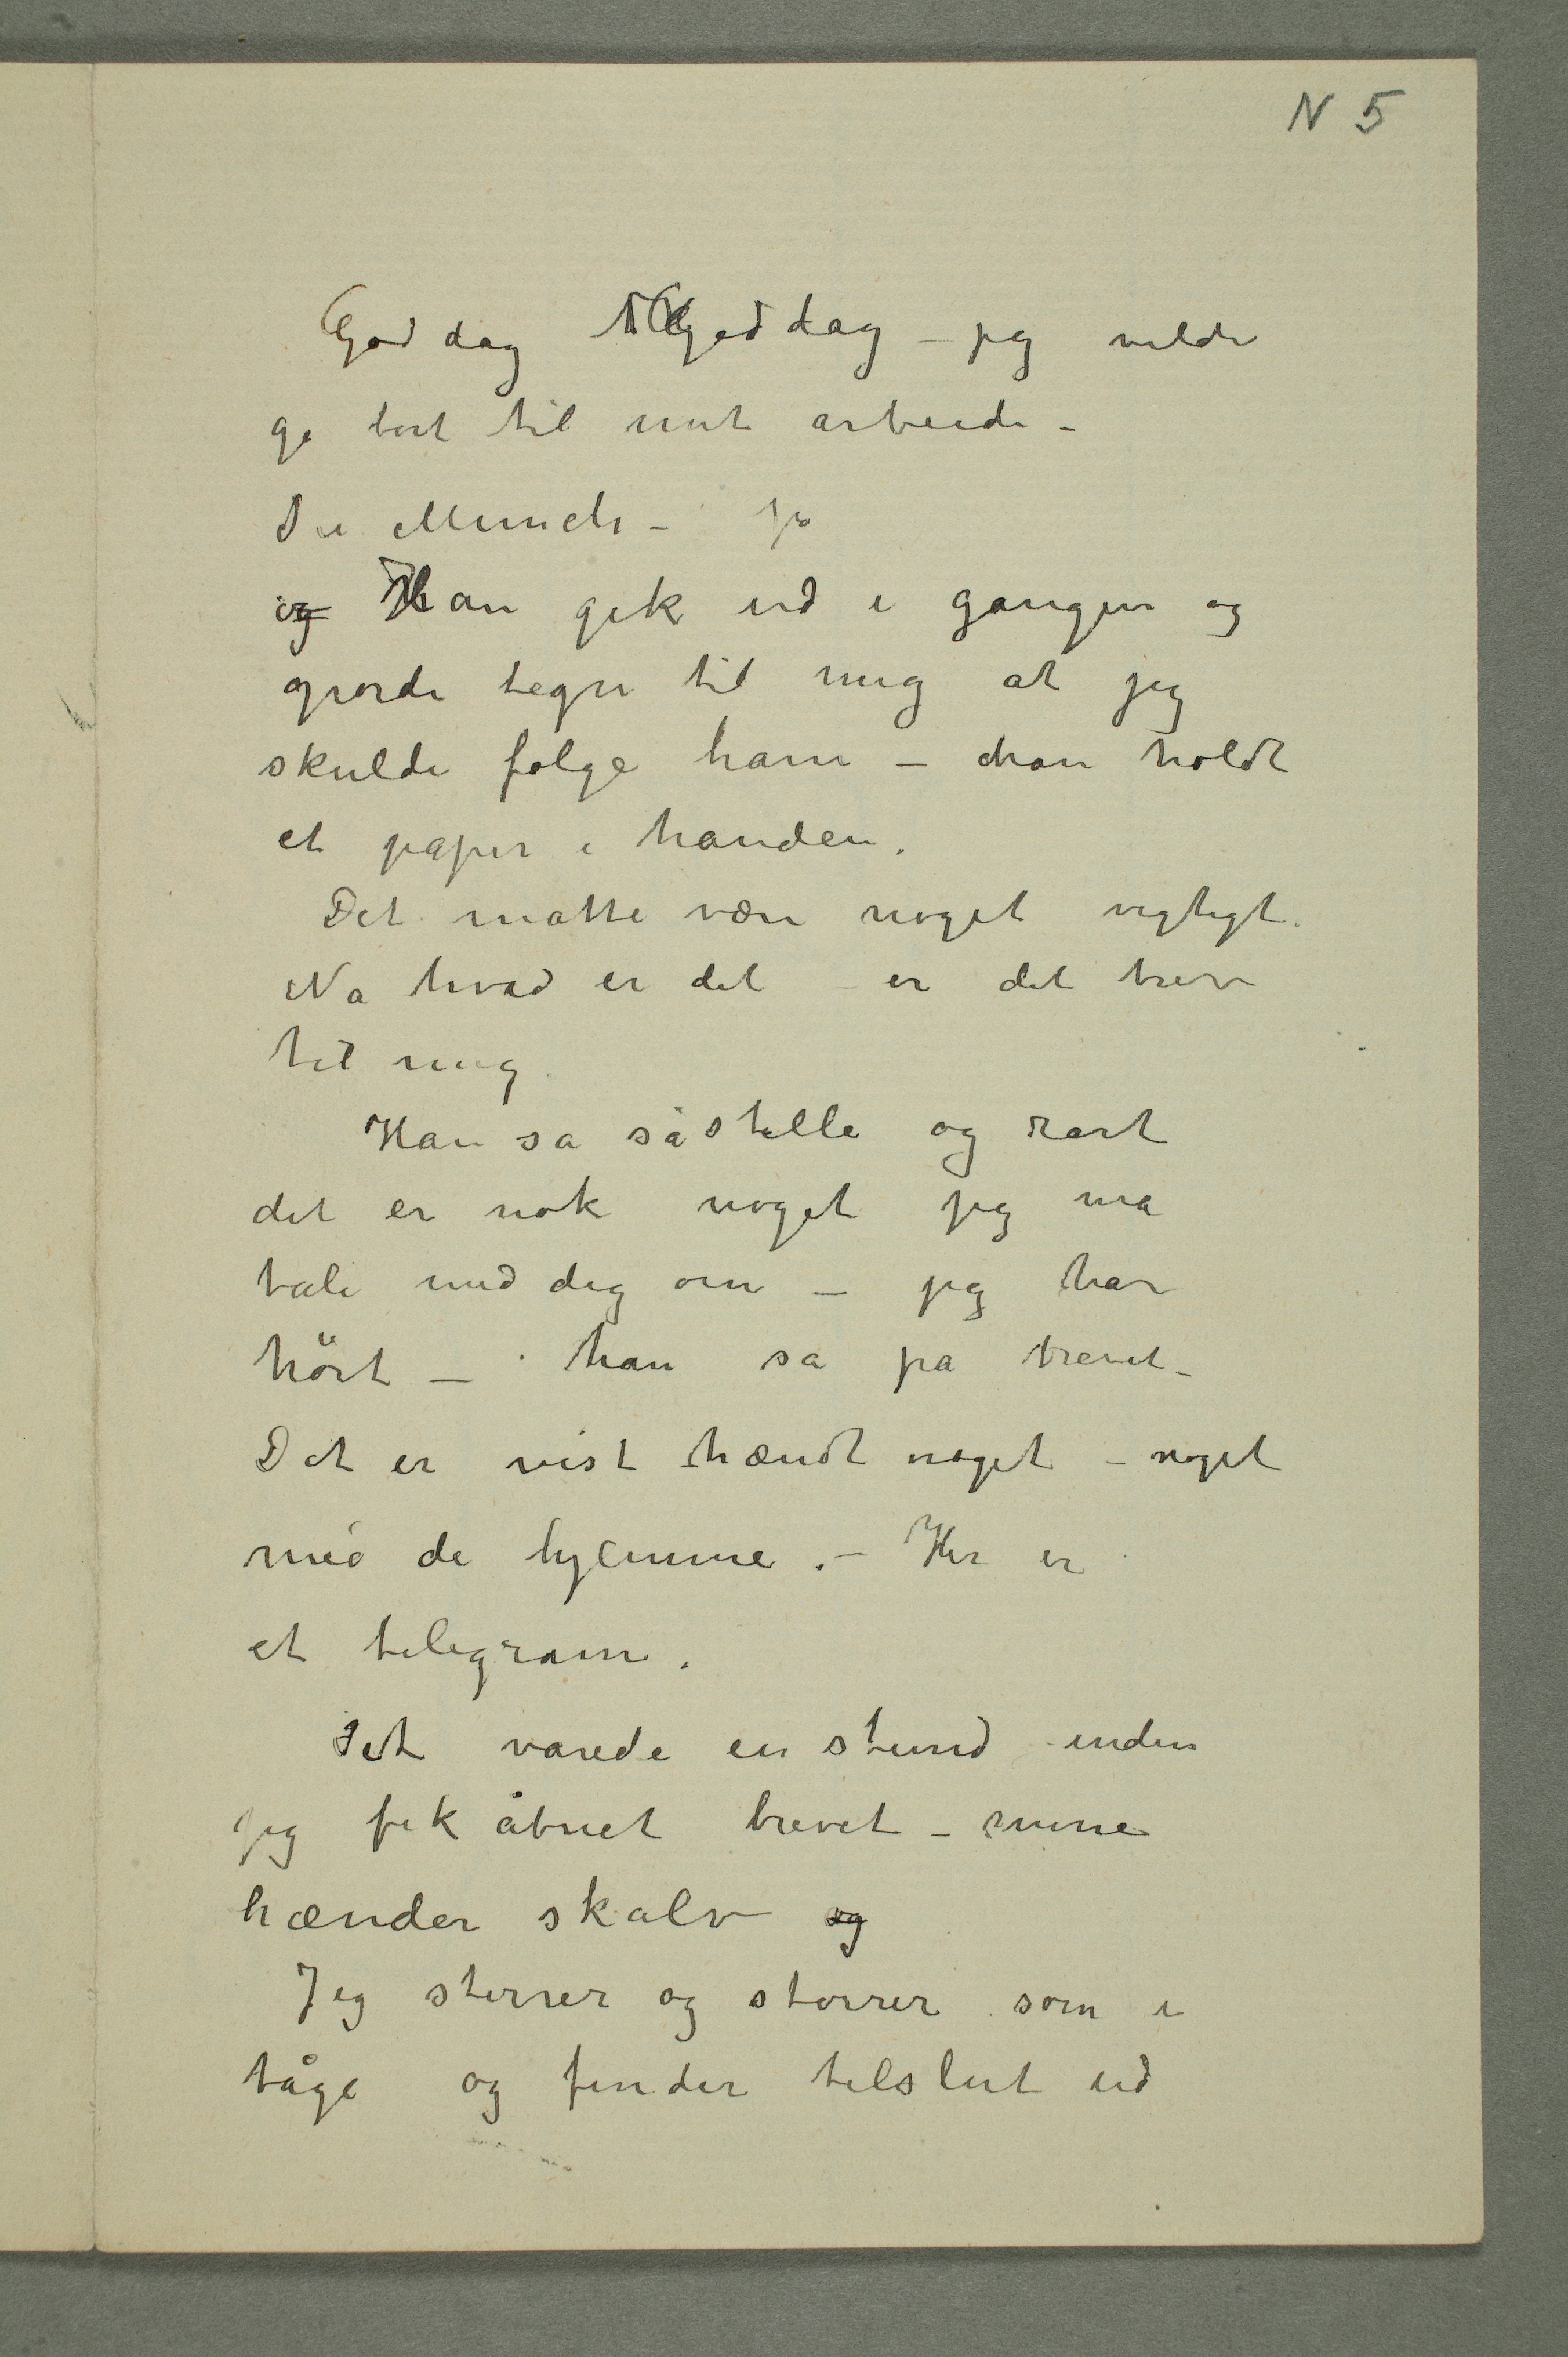 N 5
God dag Goddag – jeg vilde
gå bort til mit arbeide –
Du Munch – Ja
og Han gik ud i gangen og
gjorde tegn til mig at jeg
skulde følge ham – han holdt
et papir i handen.
Det matte være noget vigtigt.
Na hvad er det – er det brev
til mig
Han sa så stille og rart
det er nok noget jeg ma
tale med dig om – jeg har
hört – han sa pa brevet –
Det er vist hændt noget – noget
med de hjemme. – Her er
et telegram.
Det varede en stund inden
jeg fik åbnet brevet – mine
hænder skalv og
Jeg stirrer og stirrer som i
tåge og finder tilslut ud